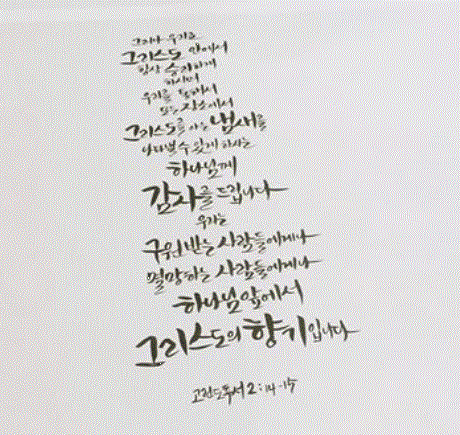 그러나 우리를
그리스도 안에서
항상 승리하게
하시며
우리를 통해서
모든 장소에서
그리스도를 아는 냄새를
나타낼 수 있게 하시는
하나님께
감사를 드립니다
우리는
구원받는 사람들에게나
멸망하는 사람들에게나
하나님 앞에서
그리스도의 향기입니다
고린도후서 2:14-15